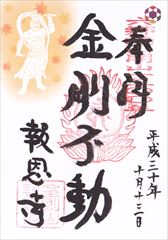 奉拝
平成二十年
十月十三日
金剛不動
報恩寺